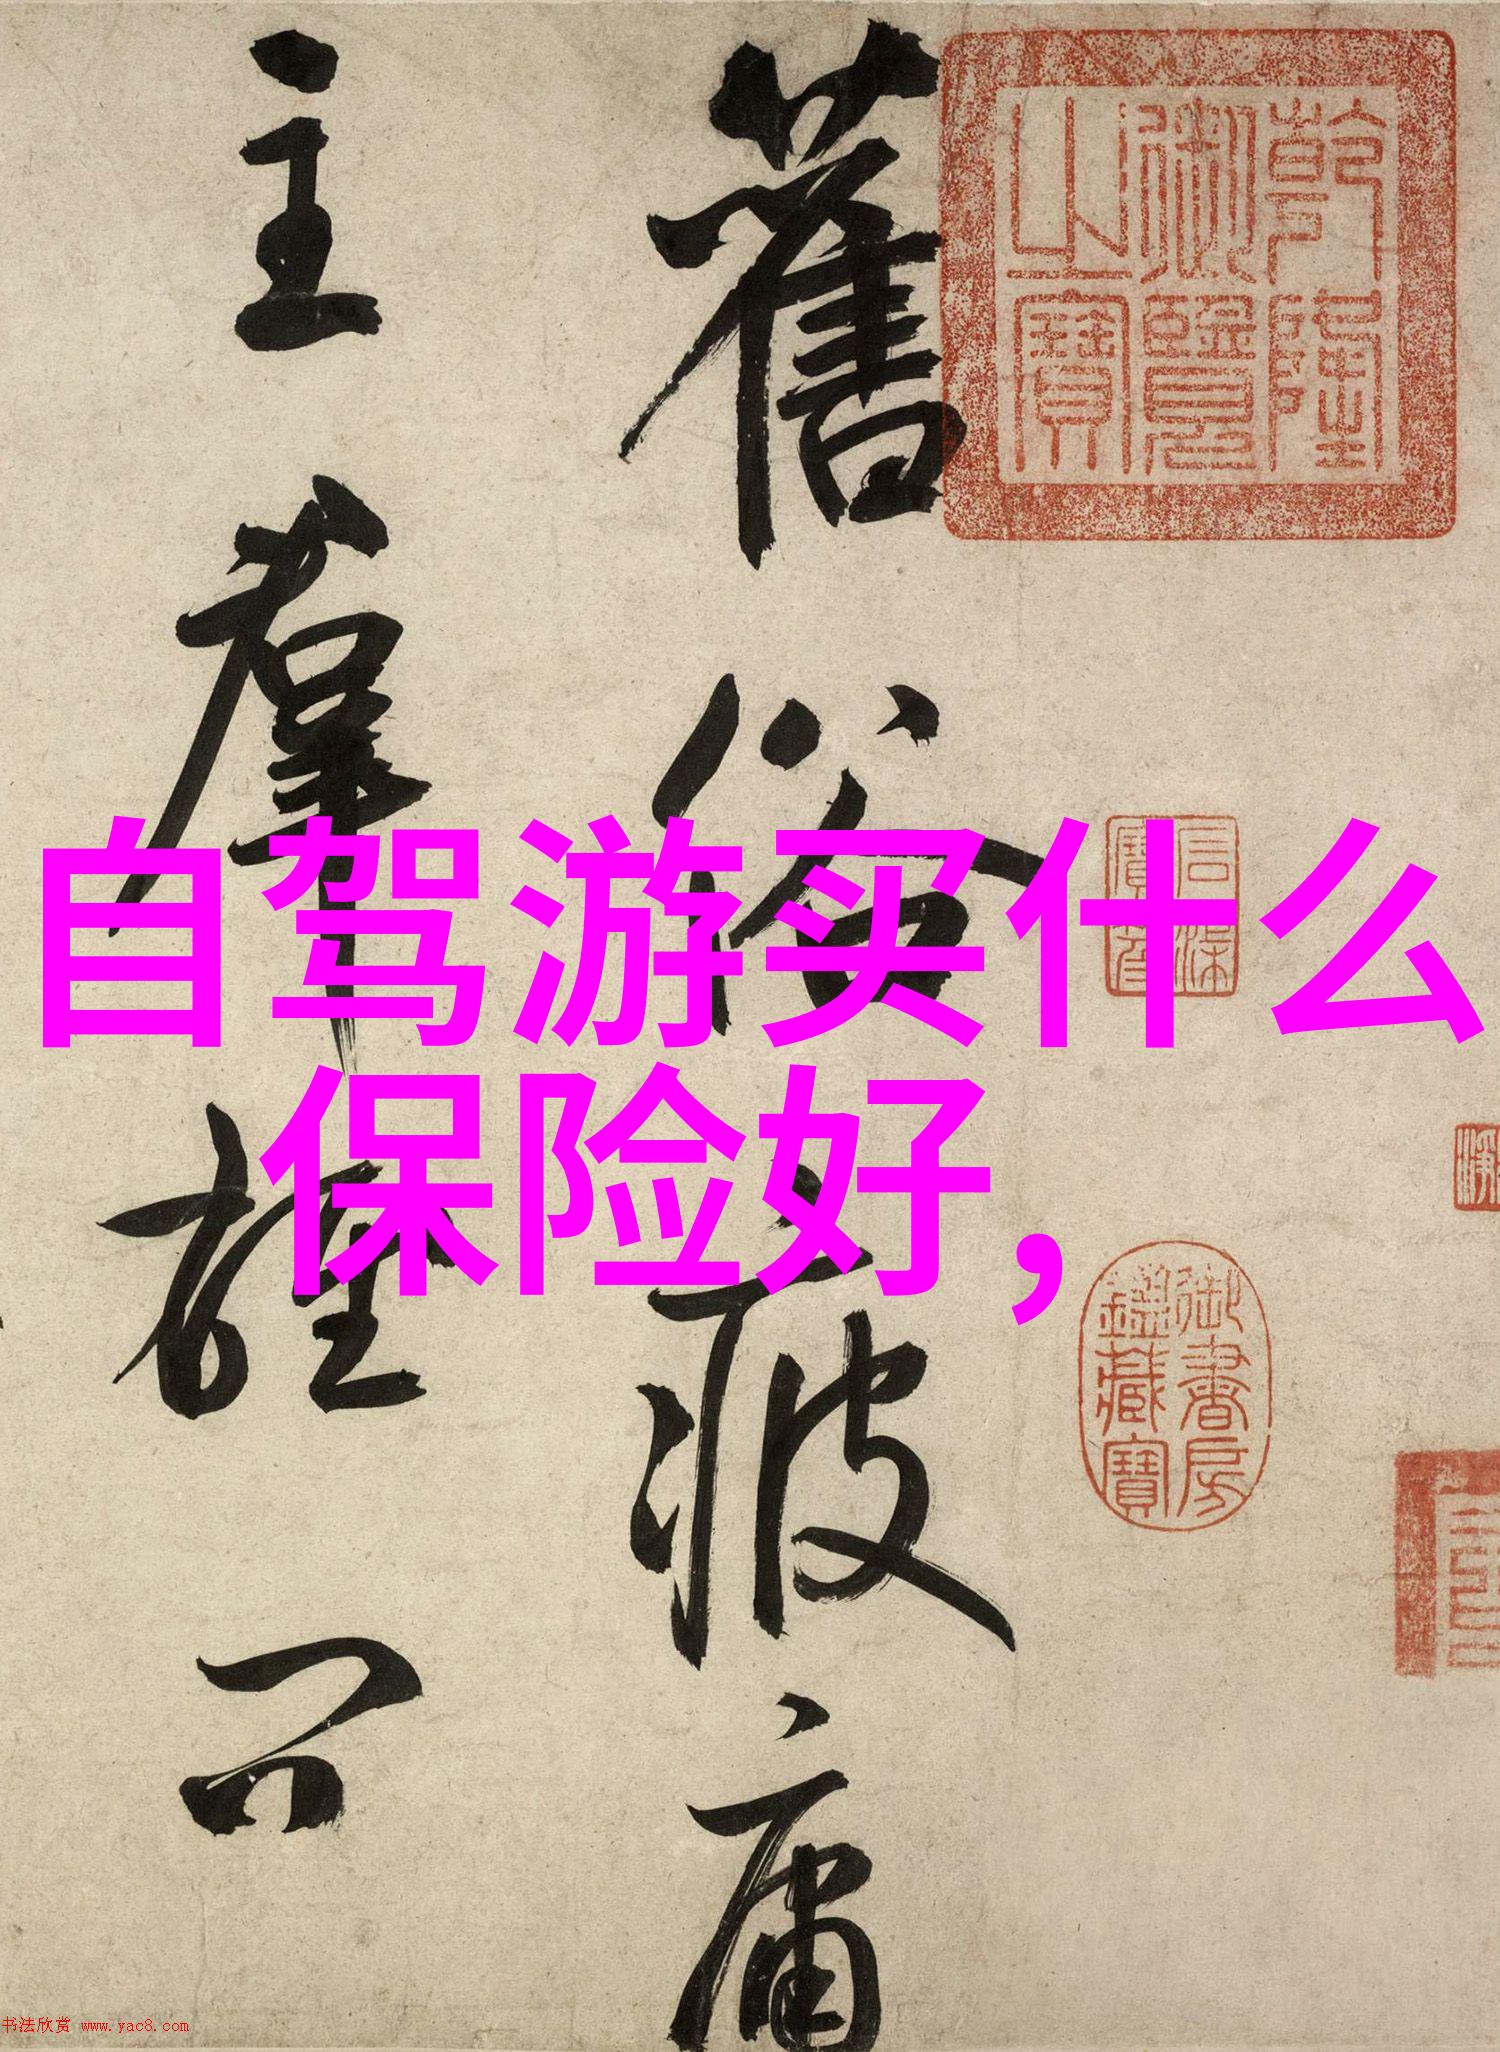 自驾游买什么
保险好，
舊俗疲庸
主羣雄只
乾隆
御覽
之寶
御書房
鑑藏寶
书法欣赏 www.yac8.com